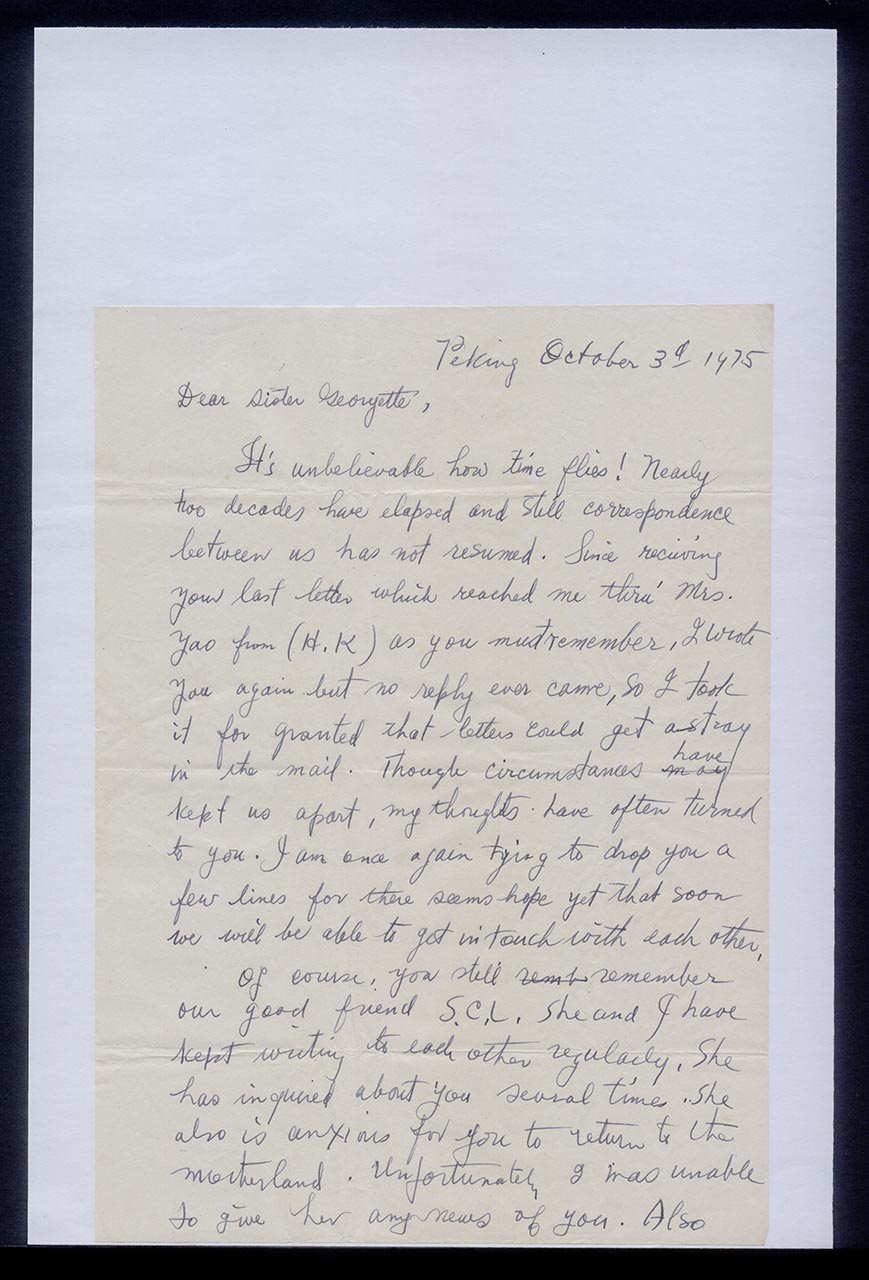 Peking October 3d 1975
Dear Sister Georgette,
It's unbelievable how time flies! Nearly
two decades have elapsed and still correspondence
between us has not resumed. Since recieving
your last letter which reached me thru' Mrs.
Yao from (H.K) as you must remember, I wrote
you again but no reply ever came, so I took
it for granted that letters could get astray
in the mail. Though circumstances may have
kept us apart, my thoughts have often turned
to you. I am once again trying to drop you a
few lines for there seems hope yet that soon
we will be able to get in touch with each other.
Of course, you still remb remember
our good friend S.C.L. She and I have
kept writing to each other regularly. She
has inquired about you several times. She
also is anxious for you to return to the
motherland. Unfortunately I was unable
to give her any news of you. Also